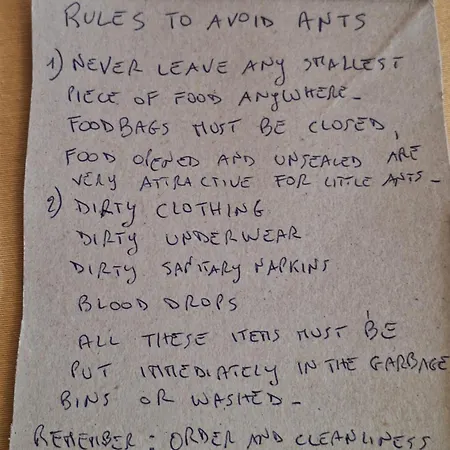 RULES TO AVOID ANTS
1) NEVER LEAVE ANY SMALLEST
PIECE OF FOOD ANYWHERE_
FOODBAGS MUST BE CLOSED,
FOOD OPENED AND UNSEALED ARE
VERY ATTRACTIVE FOR LITTLE ANTS_
2) DIRTY CLOTHING
DIRTY UNDERWEAR
DIRTY SANITARY NAPKINS
BLOOD DROPS
ALL THESE ITEMS MUST BE
PUT IMMEDIATELY IN THE GARBAGE
BINS OR WASHED_
REMEMBER: ORDER AND CLEANLINESS